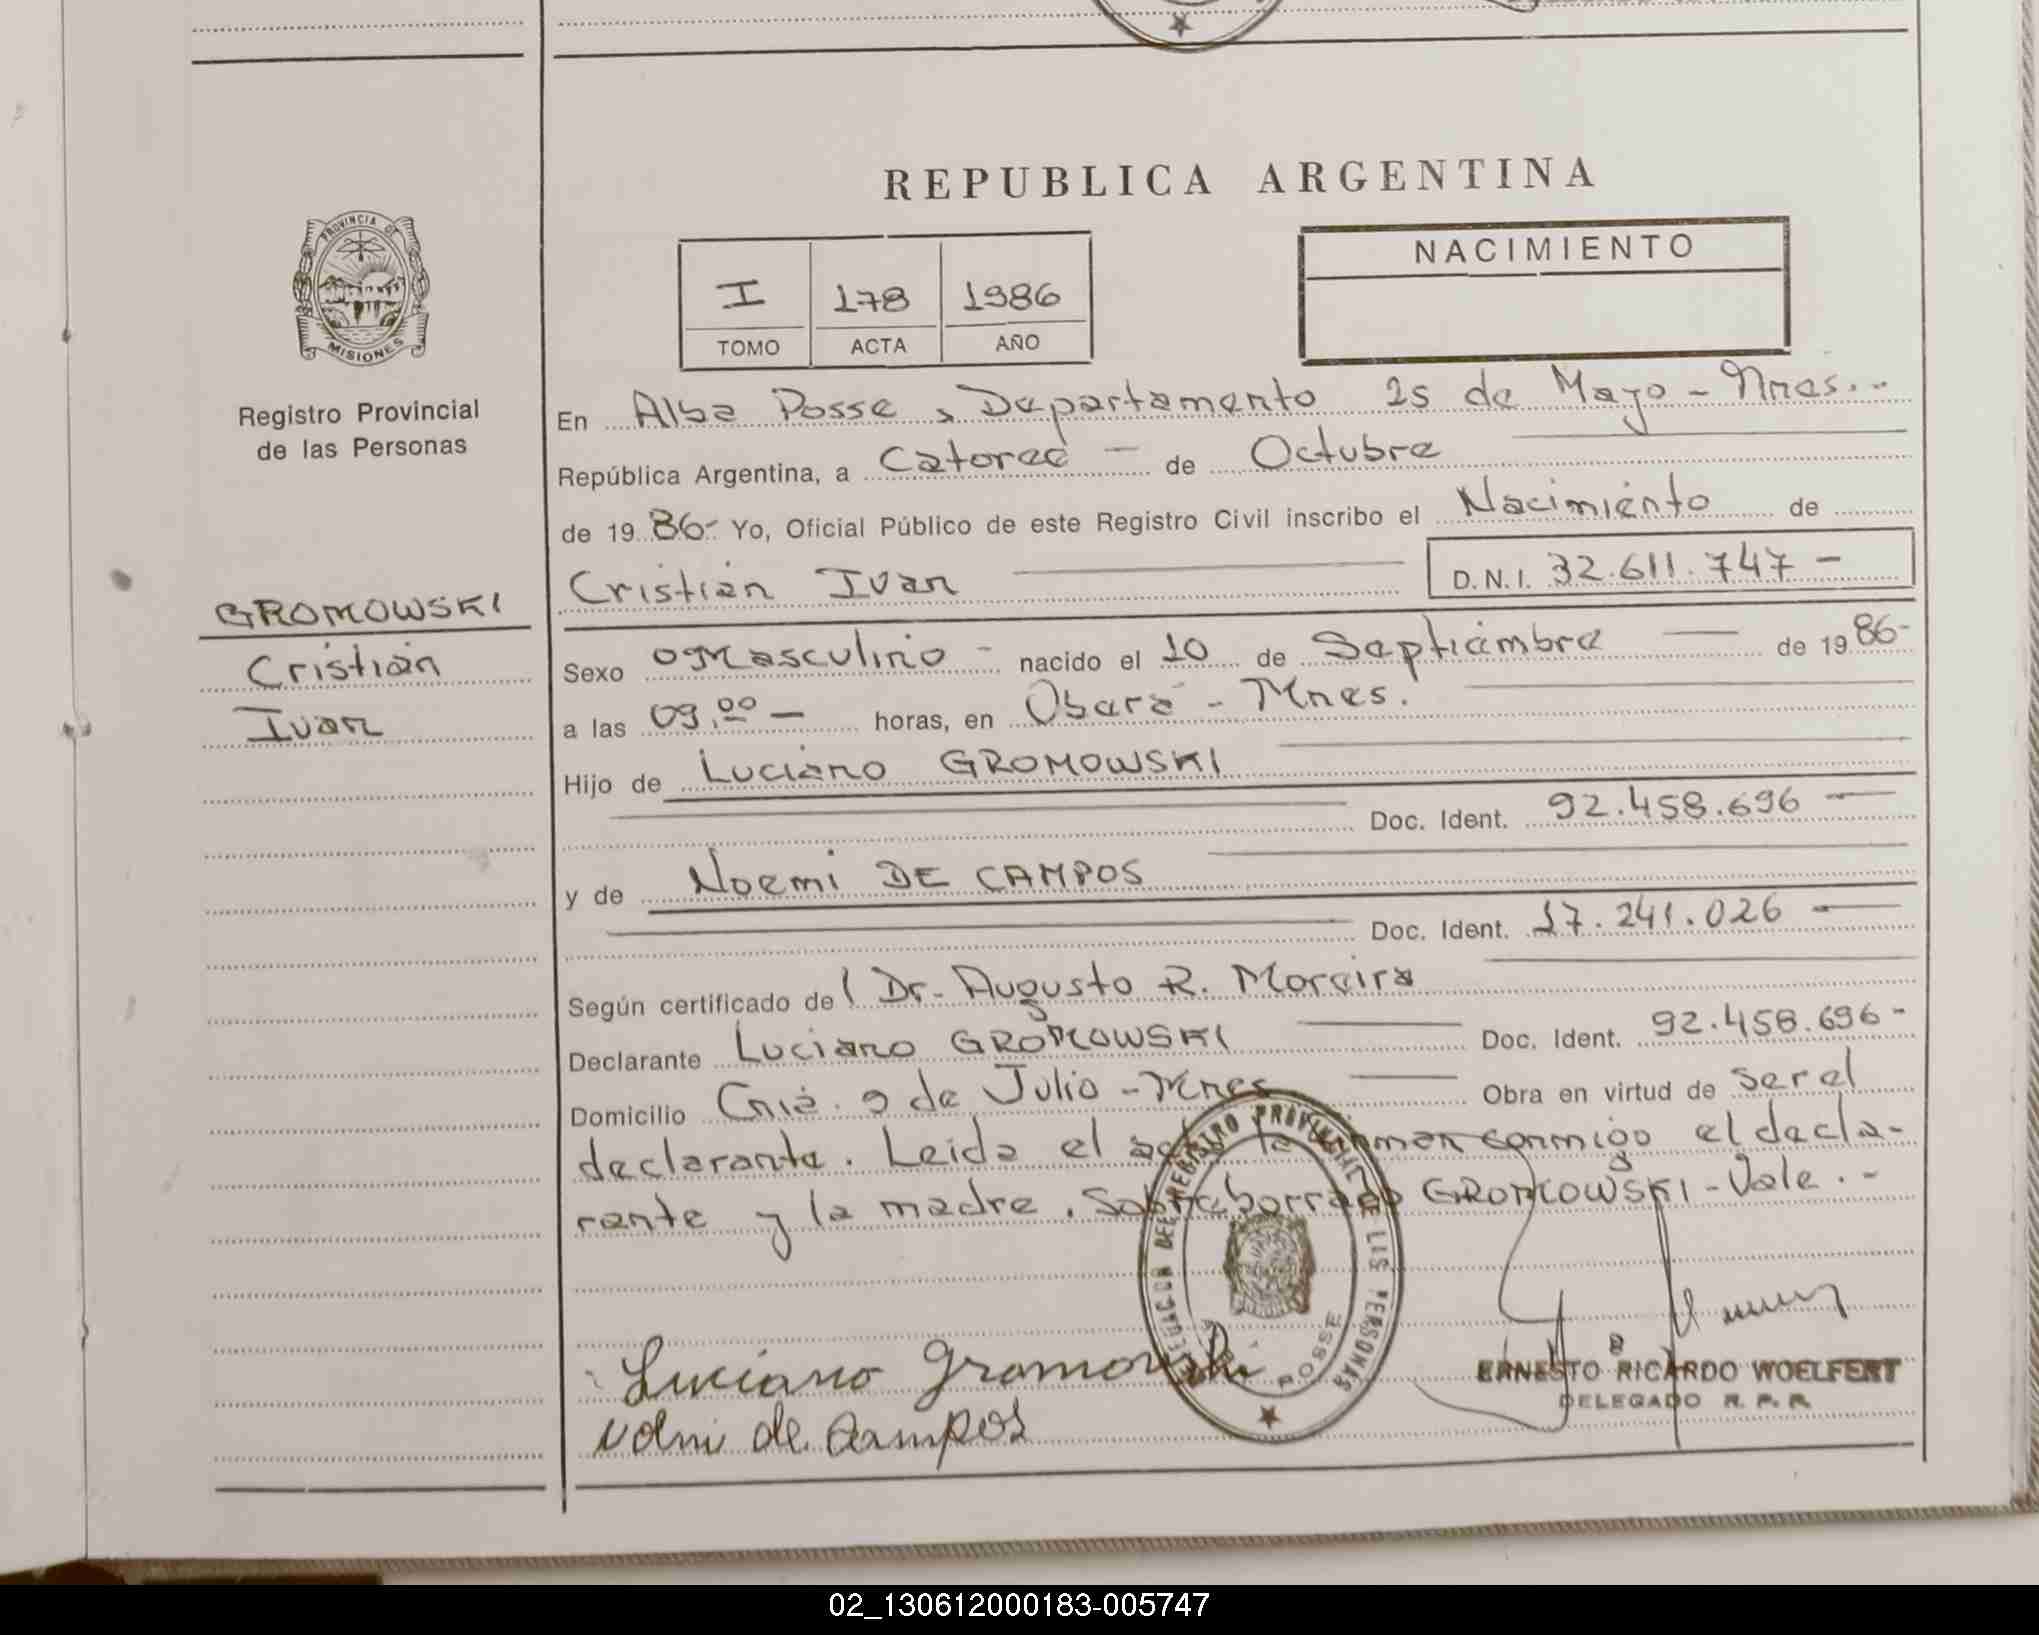 REPUBLICA ARGENTINA
PROVINCIA DE
MISIONES
Registro Provincial
de las Personas
I 178 1986
TOMO ACTA AÑO
NACIMIENTO
En Alba Posse, Departamento 25 de Mayo - Mnes.-
República Argentina, a Catorce - de Octubre
de 1986- Yo, Oficial Público de este Registro Civil inscribo el Nacimiento de
Cristian Ivan D.N.I. 32.611.747 -
GROMOWSKI
Cristian
Ivan
Sexo Masculino - nacido el 10 de Septiembre de 1986-
a las 09,00 - horas, en Oberá - Mnes.
Hijo de Luciano GROMOWSKI
Doc. Ident. 92.458.696 -
y de Noemi DE CAMPOS
Doc. Ident. 17.241.026 -
Según certificado del Dr. Augusto R. Moreira
Declarante Luciano GROMOWSKI Doc. Ident. 92.458.696-
Domicilio Cnia. 9 de Julio - Mnes Obra en virtud de ser el
declarante. Leida el acta la firman conmigo el decla-
rante y la madre. Sobreborrado GROMOWSKI - Vale.-
DELEGACION DEL REGISTRO PROVINCIAL DE LAS PERSONAS
POSSE
Luciano Gromowski
de Campos
ERNESTO RICARDO WOELFERT
DELEGADO R. P. P.
02_130612000183-005747